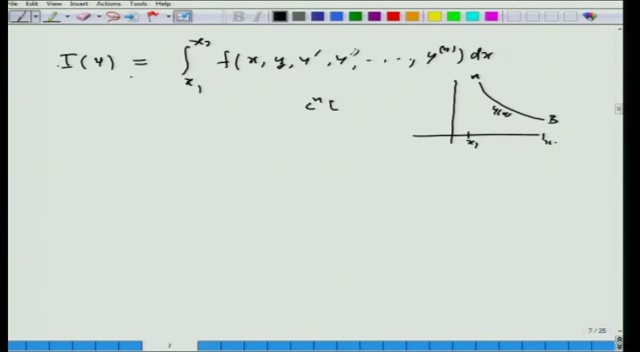 File View Insert Actions Tools Help
I(y) = ∫_{x₁}^{x₂} f(x, y, y', y'', ...., y^{(n)}) dx
cⁿ[
A
y(x)
B
x₁
7 / 25
7